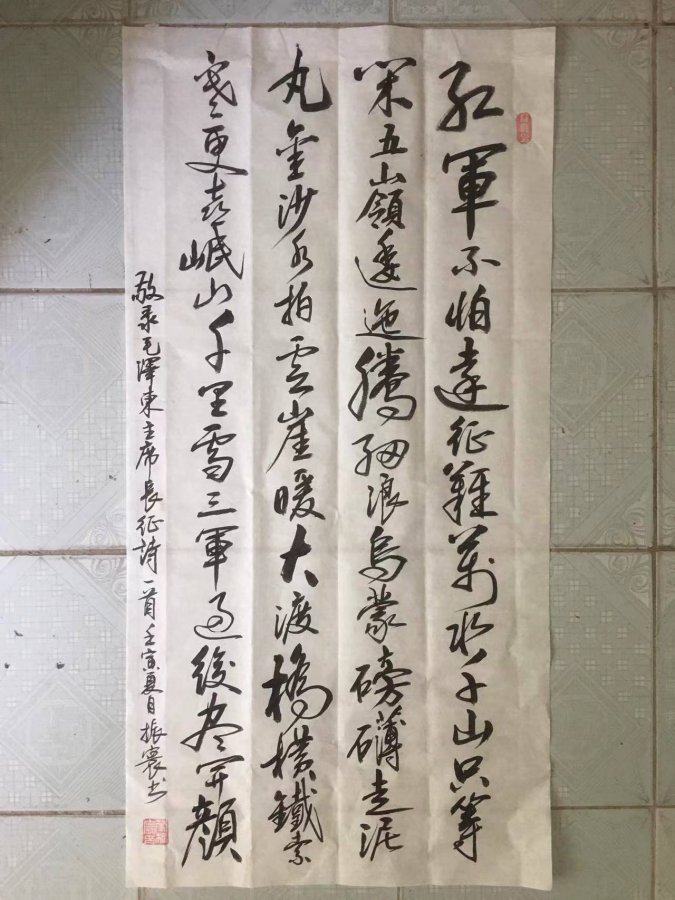 紅軍不怕遠征難萬水千山只等
閑五山嶺逶迤騰細浪烏蒙磅礴走泥
丸金沙水拍雲崖暖大渡橋橫鐵索
寒更喜岷山千里雪三軍過後盡開顏
敬录毛澤東主席長征詩一首壬寅夏日振书